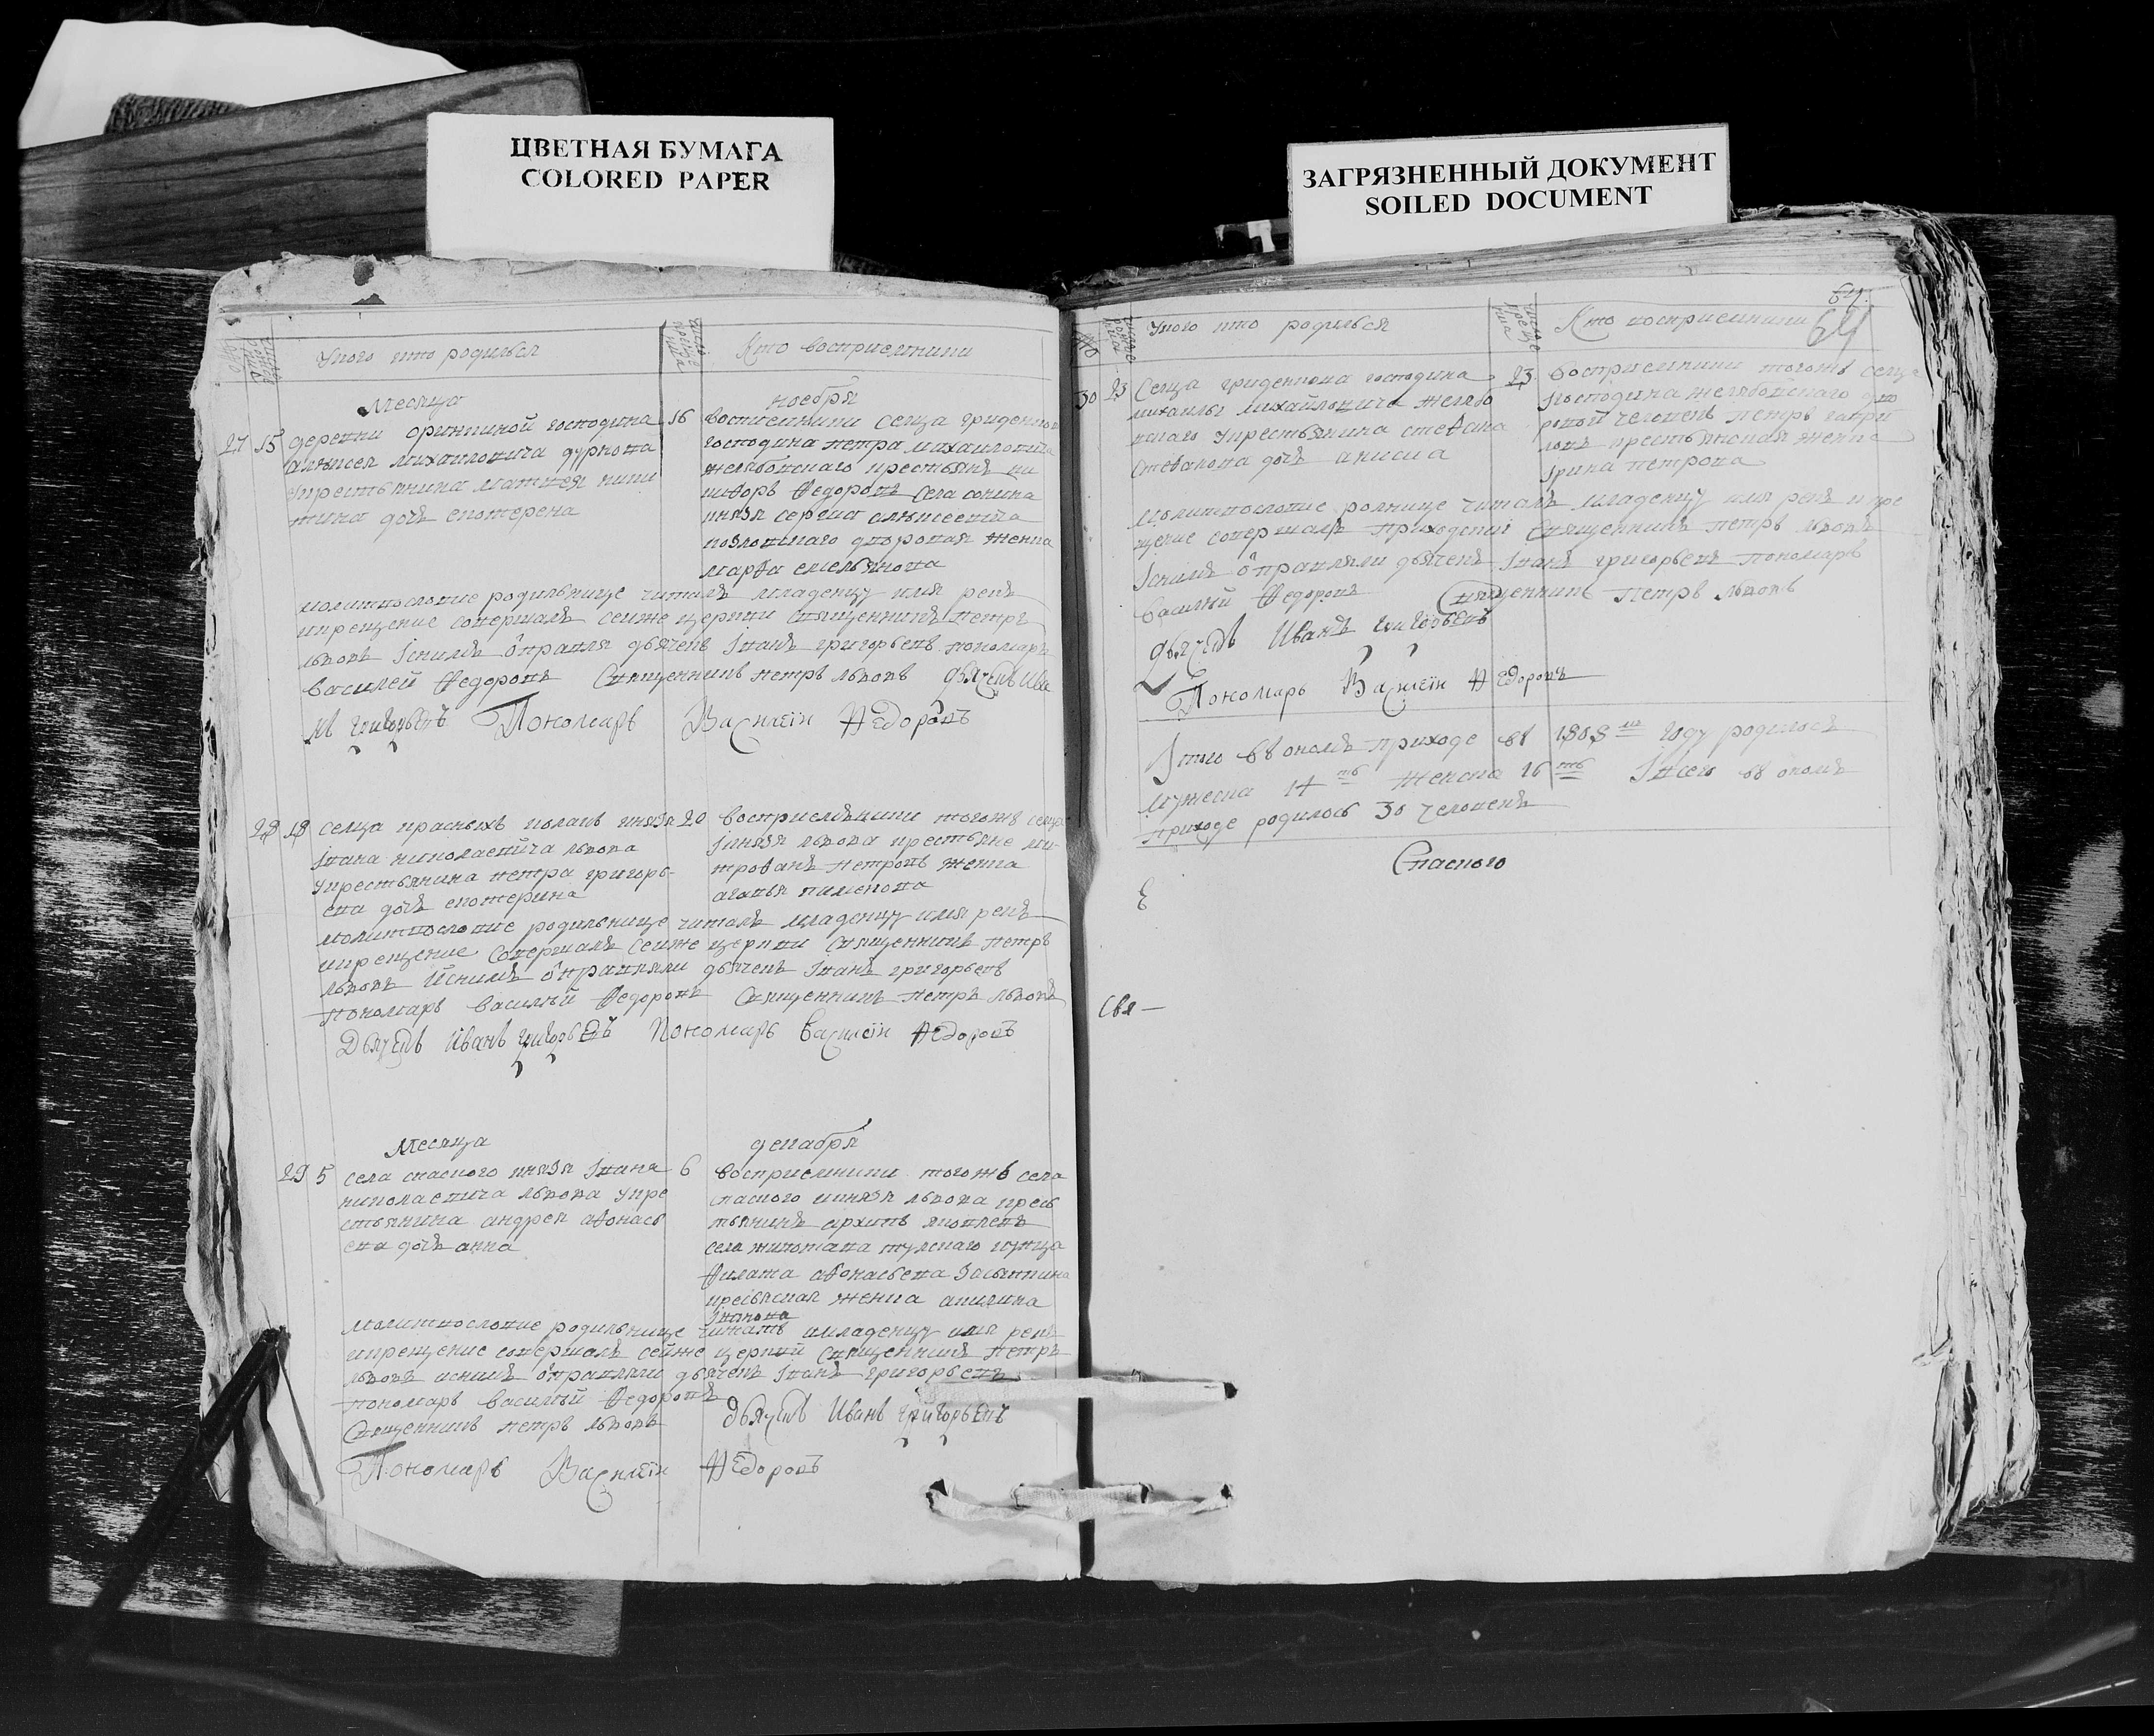 ЦВЕТНАЯ БУМАГА
COLORED PAPER
ЗАГРЯЗНЕННЫЙ ДОКУМЕНТ
SOILED DOCUMENT
Укого кто родился
Кто восприемники
Месяца
ноебря
27 15 деревни господина
алѣксея михаиловича дурнова
укрестьянина матвея ники
тина дочь екотерена
16 сельца гриденков
господина петра михаиловича
желябожскаго крестьянъ ни
кифоръ Ѳедоровъ села сонина
князя сергия алѣксеевича
дворовая женка
марѳа емельянова
молитвословие родильнице читалъ младенцу имя рекъ
икрещение совершалъ сейже церкви священникъ петръ
львовъ Iснимъ отправля дьячекъ Iванъ григорьевъ пономарь
василей Ѳедоровъ Священникъ петръ львовъ Дьячекъ Ива
нъ григорьевъ Пономарь Василей Ѳедоровъ
28 18 селца красныхъ князя
Iвана николаевича львова
укрестьянина петра григорь-
ева дочь екотерина
20 восприемники тогожъ селца
князя львова крестьяне ми-
трофанъ петровъ женка
агафья пименова
молитвословие родильнице читалъ младенцу имя рекъ
икрещение совершалъ сейже церкви священникъ петръ
львовъ Иснимъ отправляли дьячекъ Iванъ григорьевъ
пономарь василий Ѳедоровъ Священникъ петръ львовъ
Дьячекъ Иванъ григорьевъ Пономарь Василей Ѳедоровъ
Месяца
декабря
29 5 села спаского князя Iвана
николаевича львова укре
стьянина андрея аѳонась
ева дочь анна
6 восприемники тогожъ села
спаского князя львова кресь
тьянинъ архипъ яковлевъ
села тулскаго купца
Ѳилата аѳонасьева
женка акилина
Iванова
молитвословие родильнице читалъ имладенцу имя рекъ
икрещение совершалъ сейже церкви священникъ петръ
львовъ иснимъ отправляли дьячекъ Iванъ григорьевъ
пономарь василий Ѳедоровъ
Священникъ петръ львовъ Дьячекъ Иванъ григорьевъ
Пономарь Василей Ѳедоровъ
64
64
Укого кто родился
Кто восприемники
30 23 Селца гриденкова господина
михаилы михайловича желябо
укрестьянина стеѳана
стеѳанова дочь анисиа
23 восприемники тогожъ селца
господина желябойскаго дво
ровой человекъ петръ гаври
ловъ крестьянская женка
Iрина петрова
молитвословие читалъ младенцу имя рекъ и кре
щение совершалъ приходский священникъ петръ львовъ
Iснимъ отправляли дьячекъ Iванъ григорьевъ пономарь
василий Ѳедоровъ Священникъ петръ львовъ
Дьячекъ Иванъ григорьевъ
Пономарь Василей Ѳедоровъ
Iтого въ ономъ приходе въ 1808 году родилось
мужеска 14 женска 16 Iвсего въ ономъ
приходе родилось 30 человекъ
Спаского
Свя—